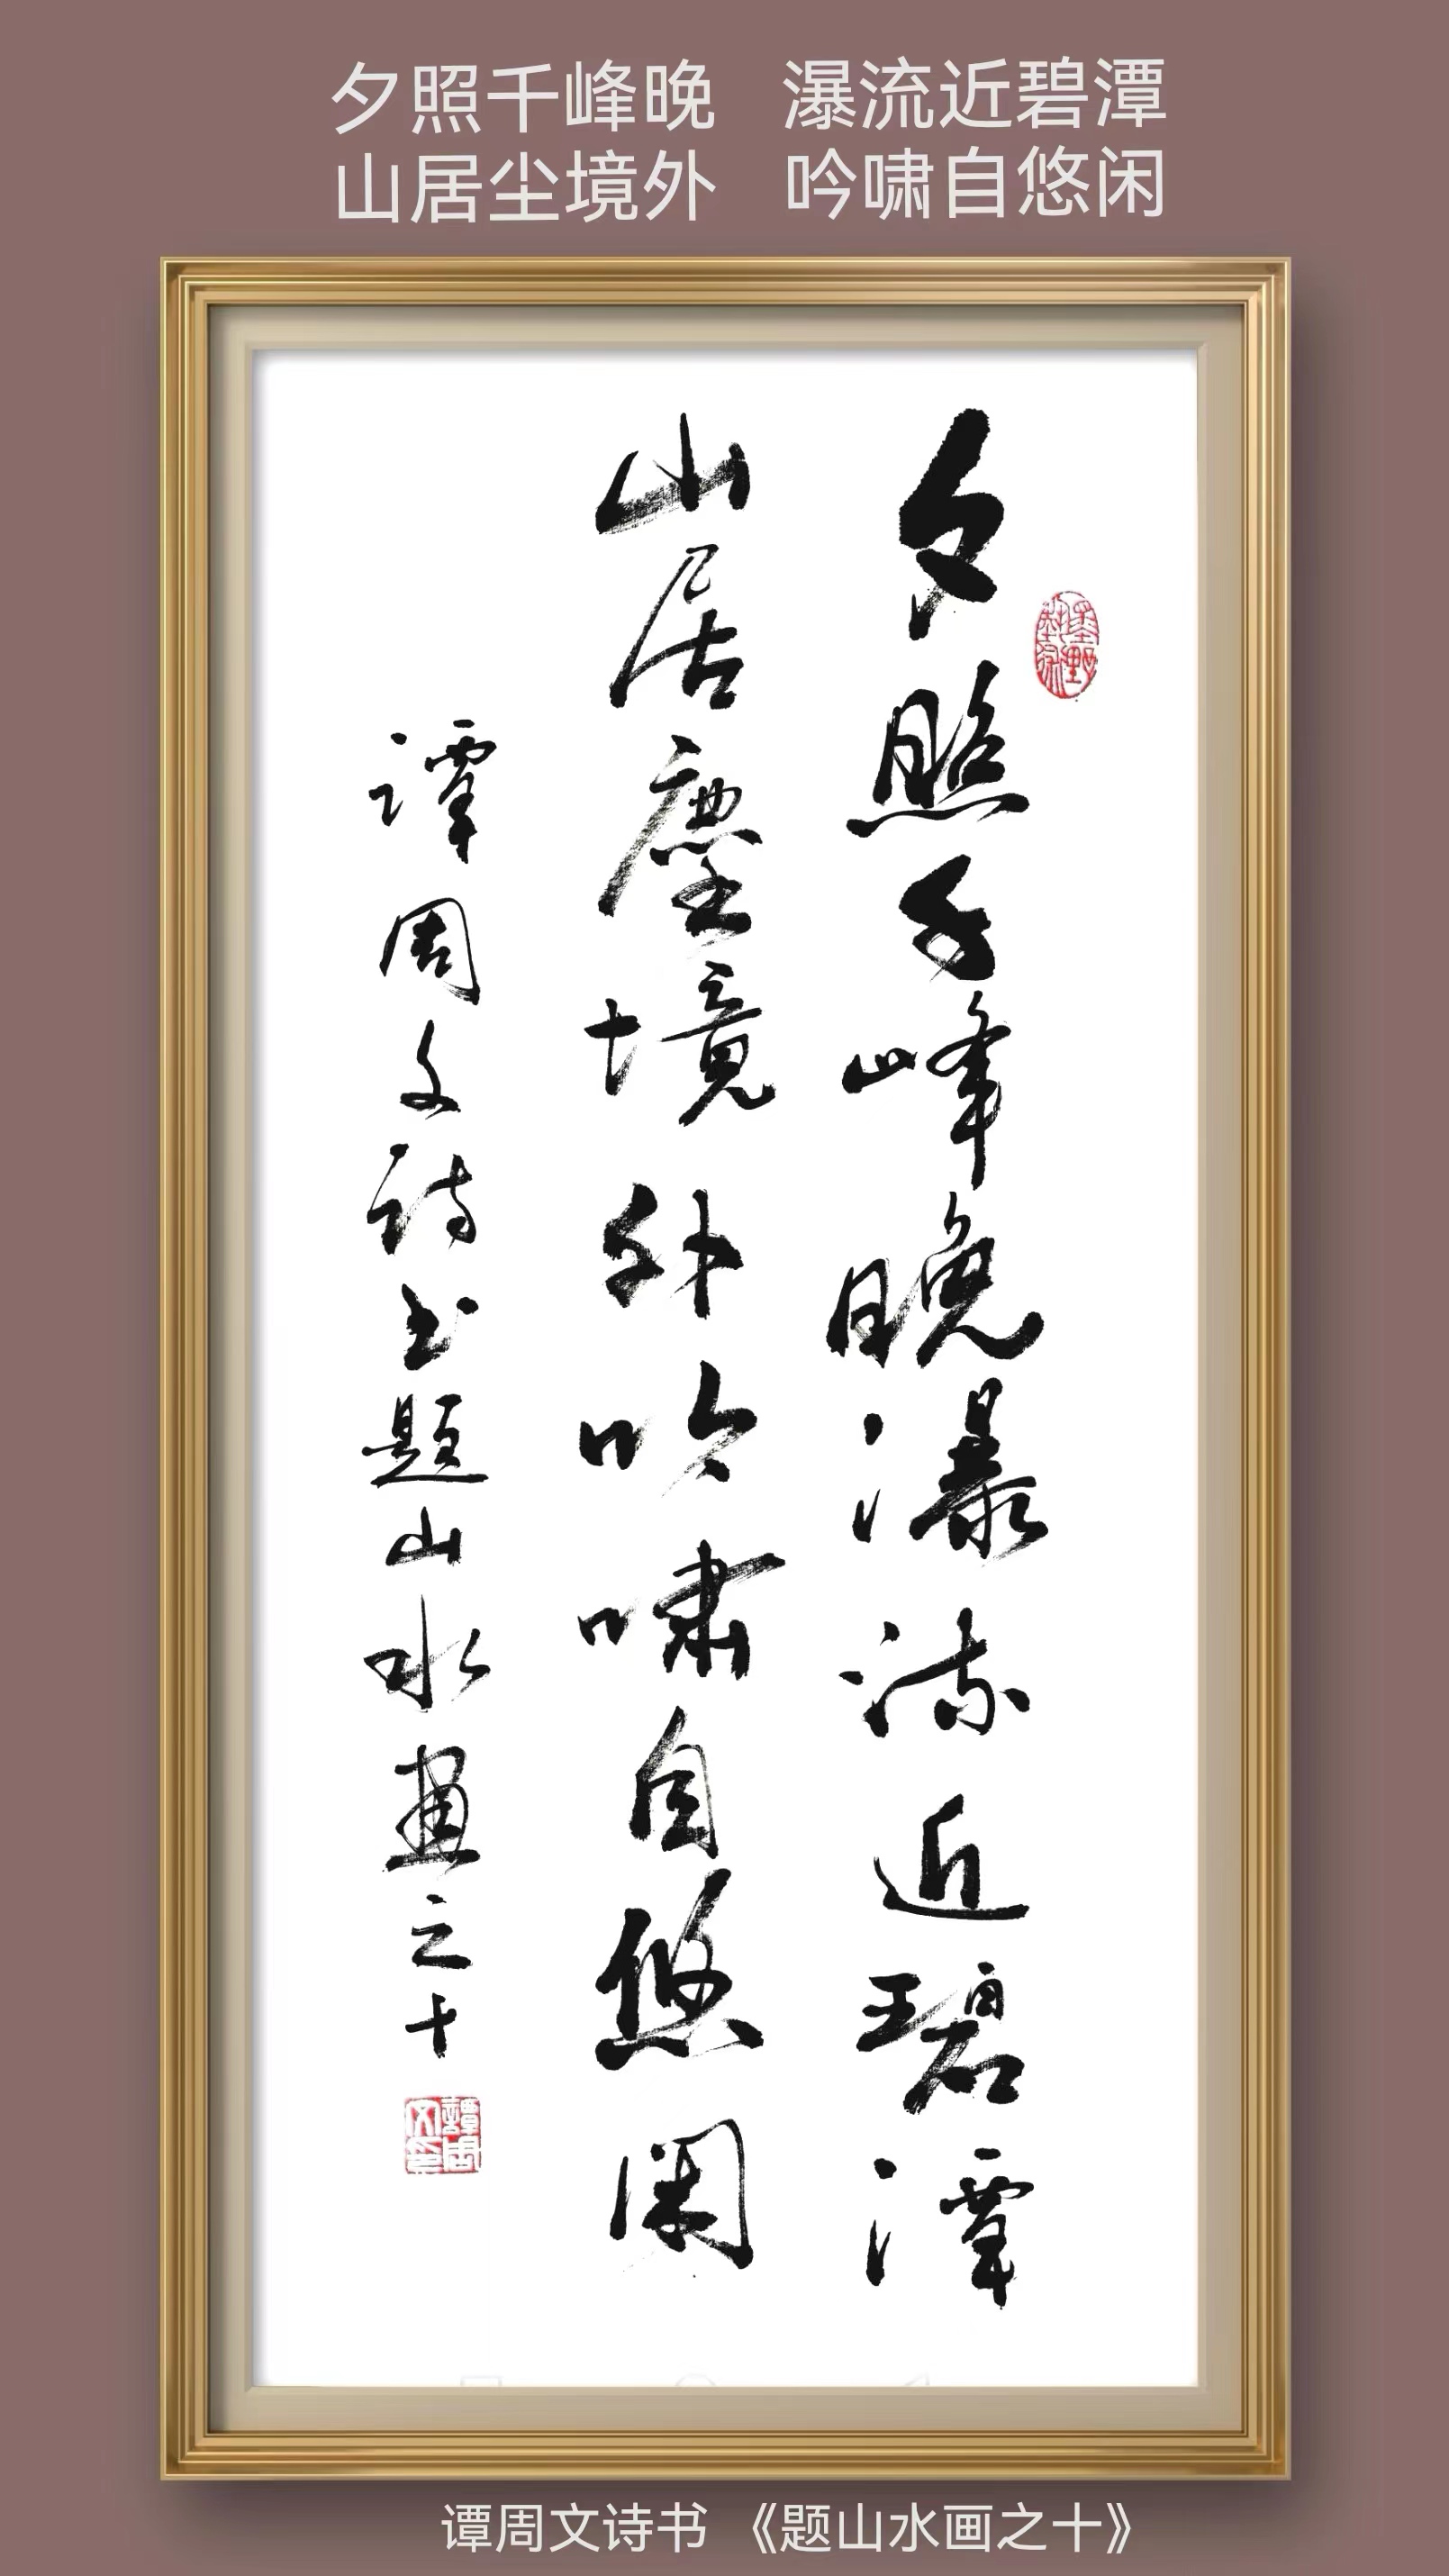 夕照千峰晚 瀑流近碧潭
山居尘境外 吟啸自悠闲
夕照千峰晚瀑流近碧潭
山居塵境外吟啸自悠闲
谭周文诗书题山水画之十
譚周文印
谭周文诗书《题山水画之十》